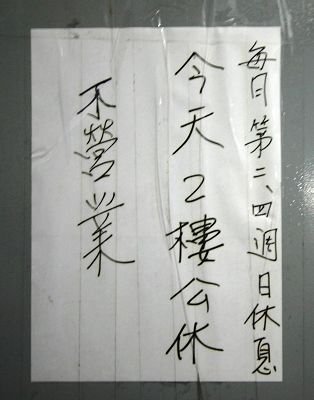 每日第二、四週日休息
今天2樓公休
不營業